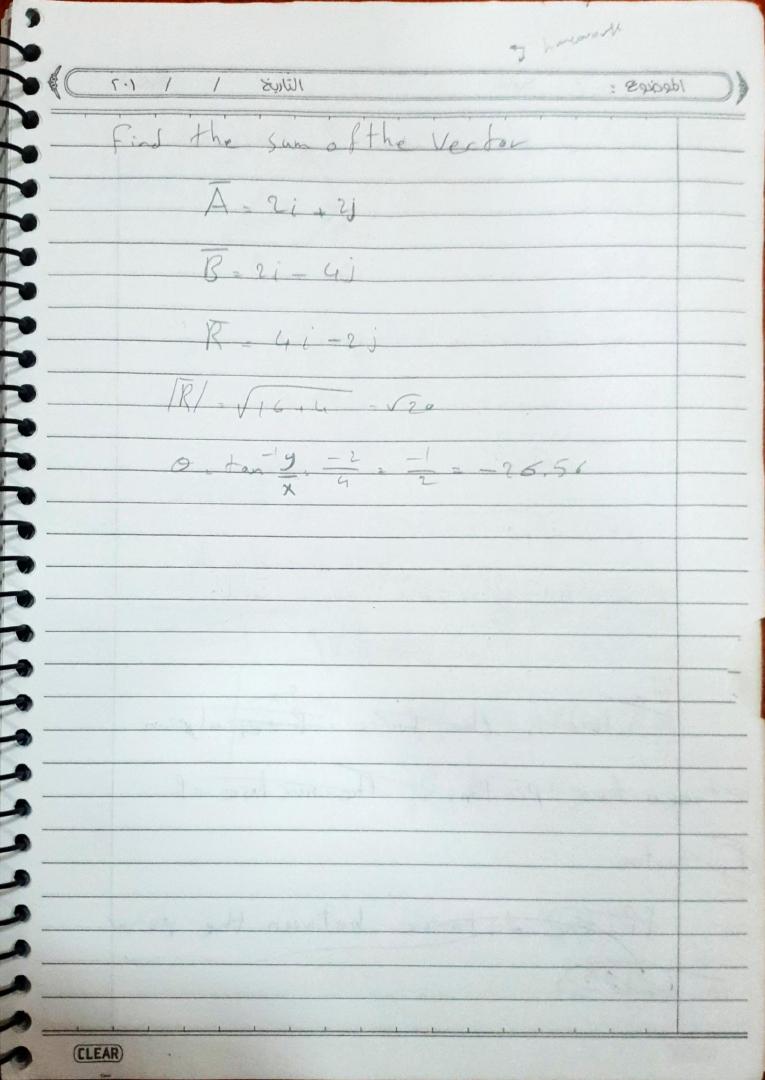 التاريخ / / ٢٠١
الموضوع :
Find the sum of the Vector
A = 2i + 2j
B = 2i - 4j
R = 4i - 2j
|R| = √16+4 = √20
θ = tan⁻¹ y/x = -2/4 = -1/2 = -26.56
CLEAR